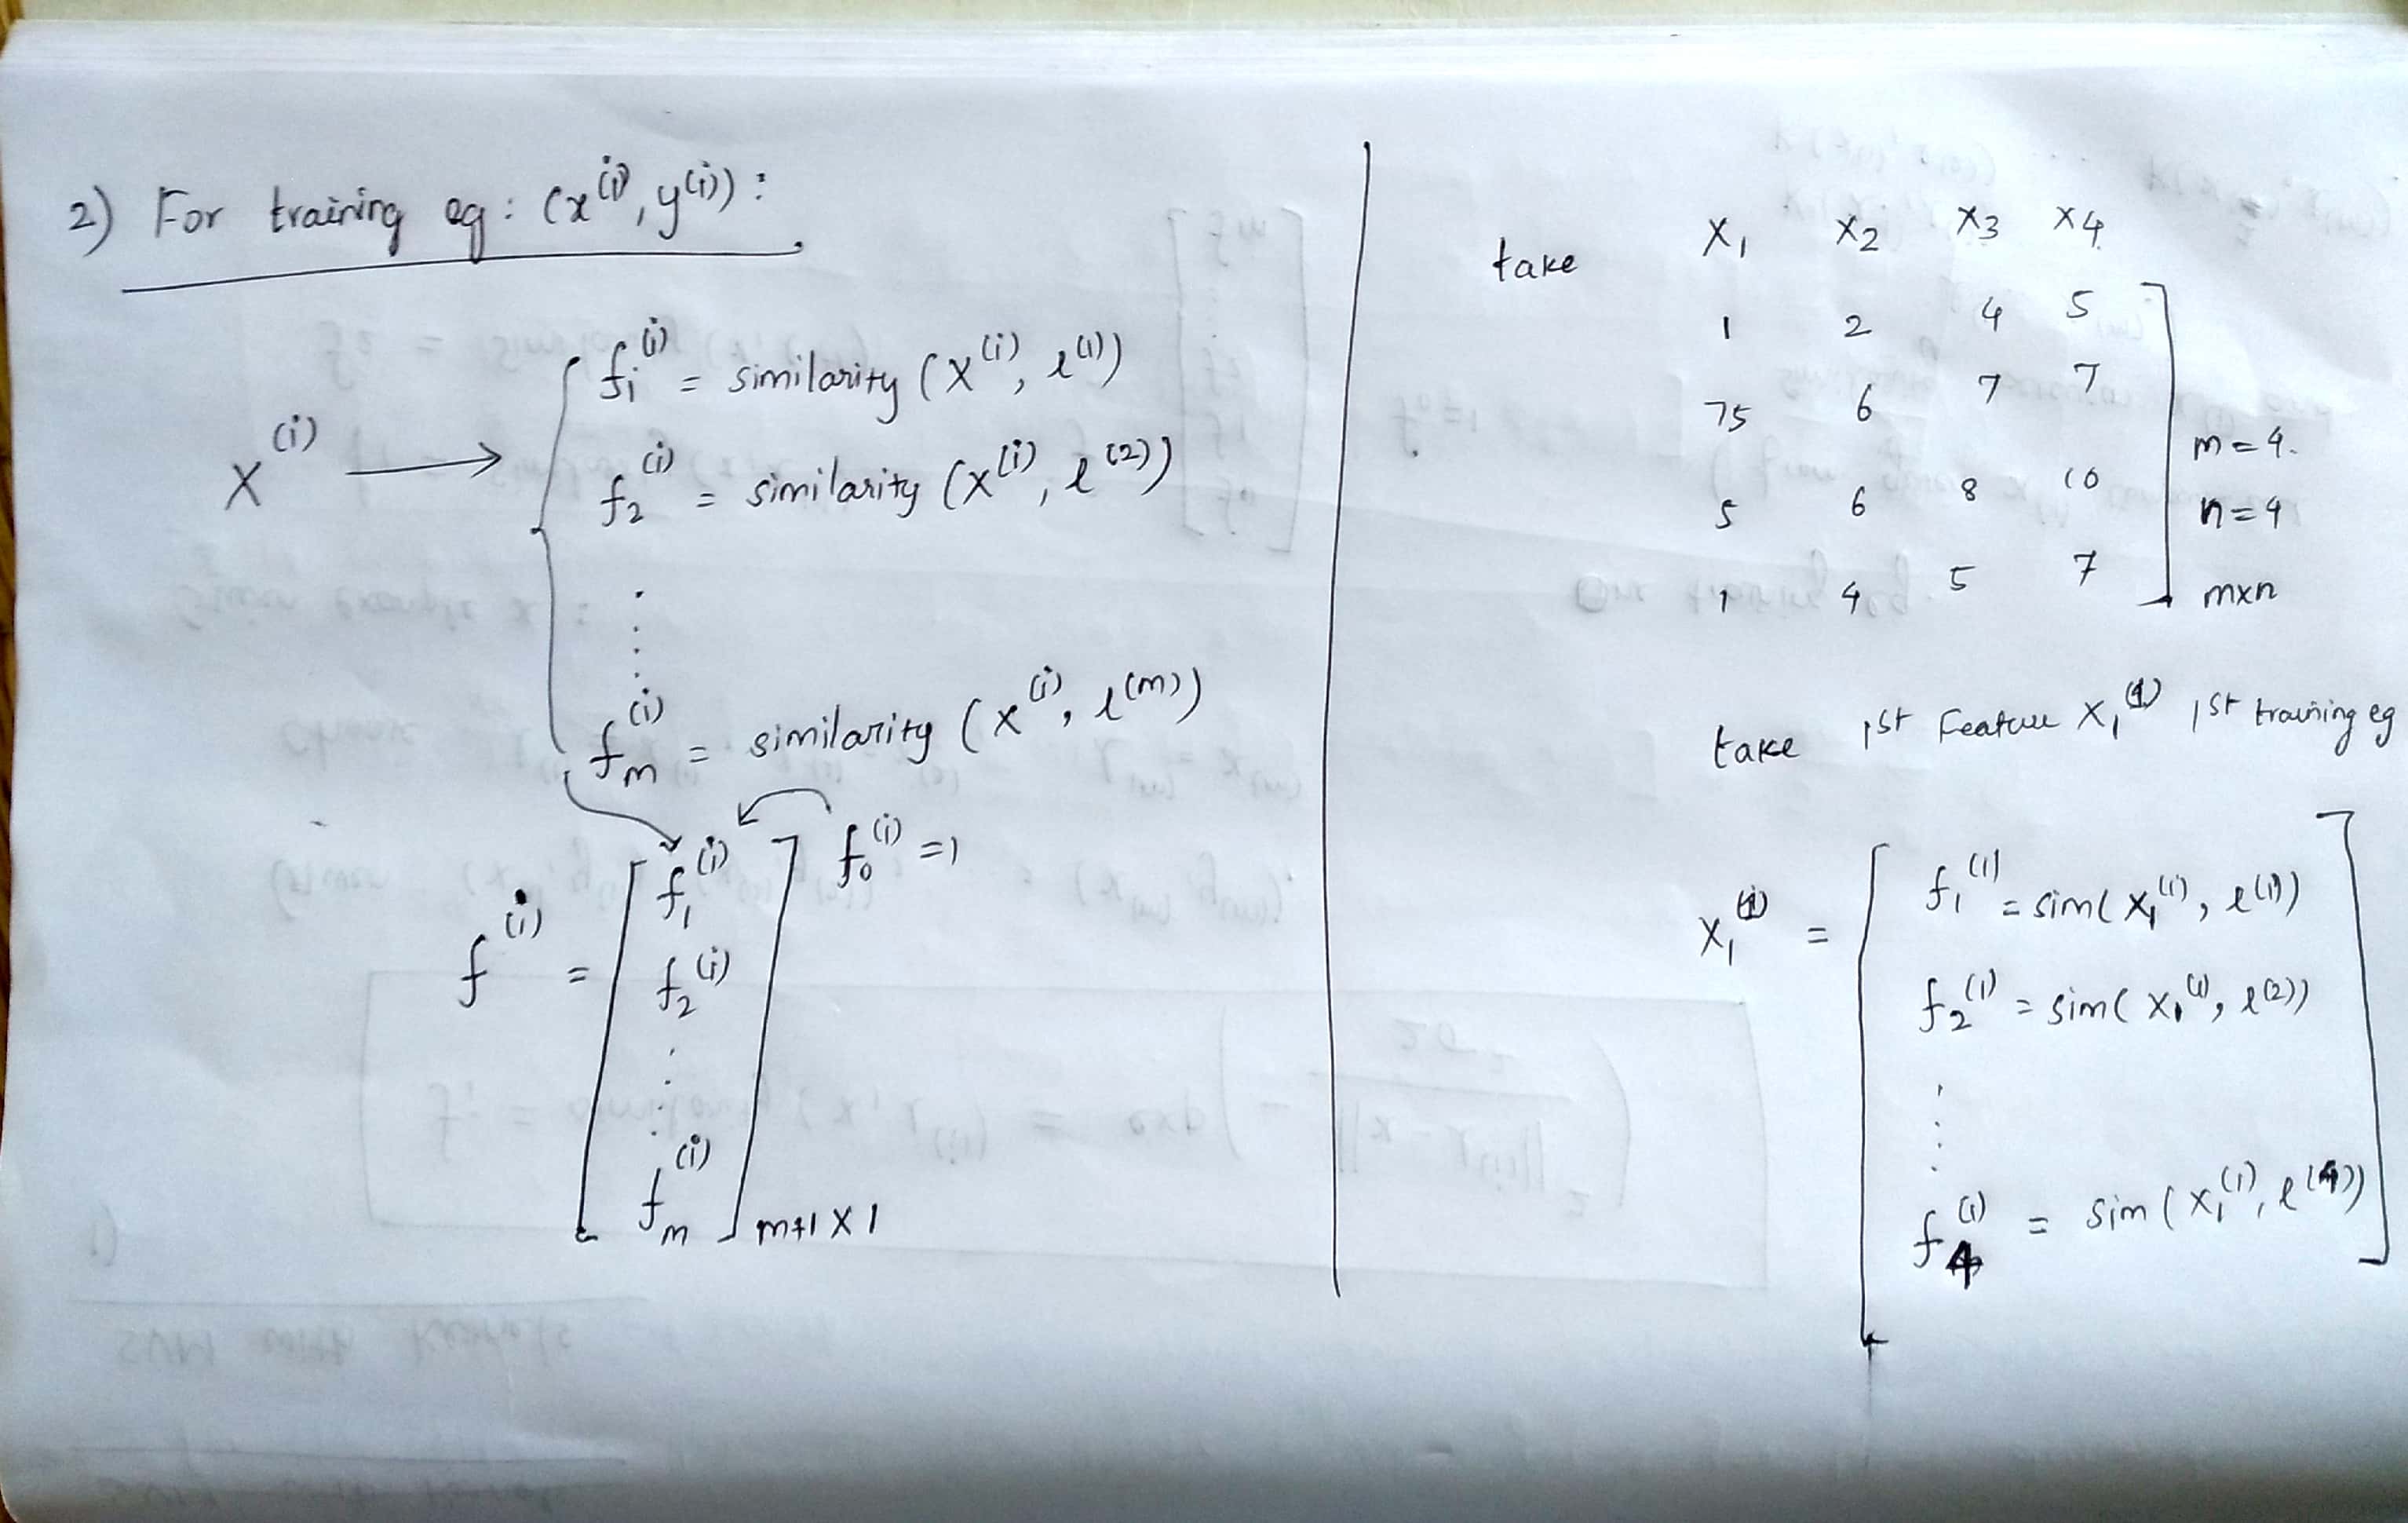 2) For training eg: (x^(i), y^(i)):
f₁^(i) = similarity (x^(i), l^(1))
x^(i) → f₂^(i) = similarity (x^(i), l^(2))
⋮
fₘ^(i) = similarity (x^(i), l^(m))
f₀^(i) = 1
f^(i) = [ f₁^(i)
f₂^(i)
⋮
fₘ^(i) ] m+1 X 1
take x₁ x₂ x₃ x₄
1 2 4 5
75 6 7 7
m = 4.
5 6 8 10
n = 4
1 4 5 7
mxn
take 1st Feature x₁^(1) 1st training eg
x₁^(1) = [ f₁^(1) = sim( x₁^(1), l^(1))
f₂^(1) = sim( x₁^(1), l^(2))
⋮
f₄^(1) = sim (x₁^(1), l^(4)) ]